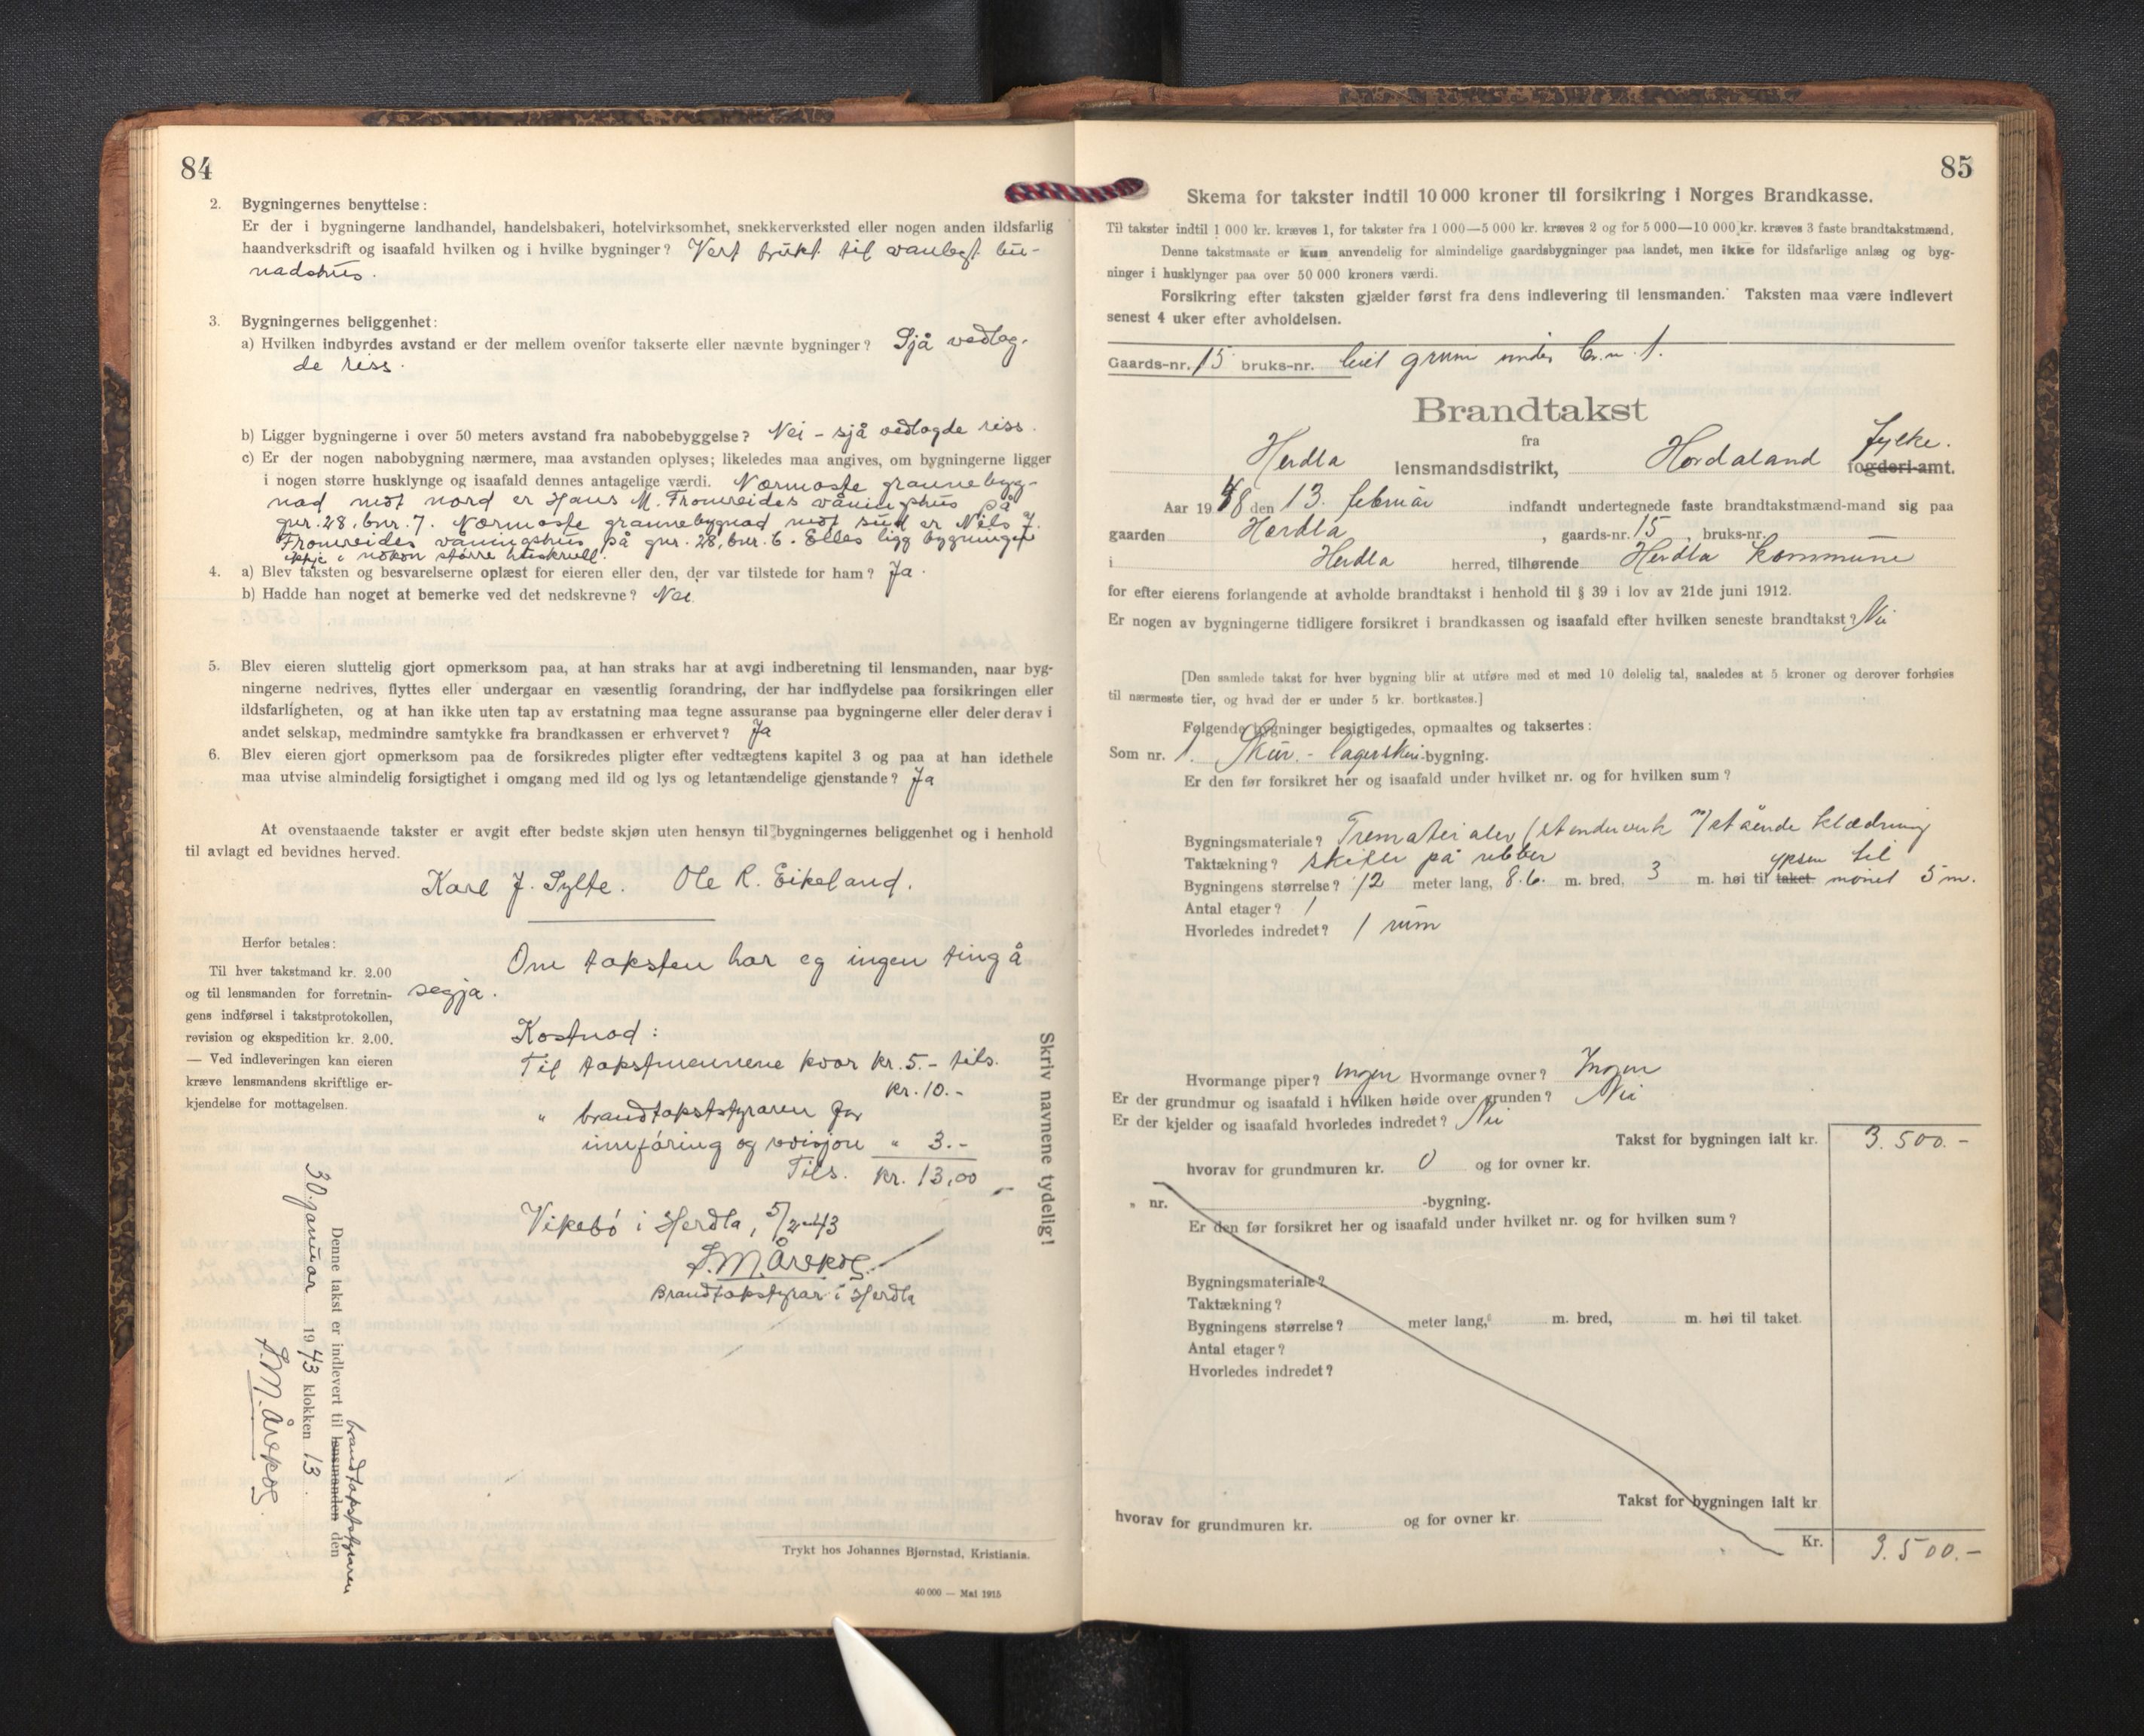 84
2. Bygningernes benyttelse:
Er der i bygningerne landhandel, handelsbakeri, hotelvirksomhet, snekkerverksted eller nogen anden ildsfarlig
haandverksdrift og isaafald hvilken og i hvilke bygninger? Vert brukt til vanlegt bu-
nadshus.
3. Bygningernes beliggenhet:
a) Hvilken indbyrdes avstand er der mellem ovenfor takserte eller nævnte bygninger? Sjå vedlag-
de riss.
b) Ligger bygningerne i over 50 meters avstand fra nabobebyggelse? Nei - sjå vedlagde riss.
c) Er der nogen nabobygning nærmere, maa avstanden oplyses; likeledes maa angives, om bygningerne ligger
i nogen større husklynge og isaafald dennes antagelige værdi. Nærmaste grannebyg-
nad mot nord er Hans M. Fromreides våningshus på
gnr. 28, bnr. 7. Nærmaste grannebygnad mot süd er Nils J.
Fromreides våningshus på gnr. 28, bnr. 6. Elles ligg bygningen
ikkje i nokon större huskrull.
4. a) Blev taksten og besvarelserne oplæst for eieren eller den, der var tilstede for ham? Ja.
b) Hadde han noget at bemerke ved det nedskrevne? Nei.
5. Blev eieren sluttelig gjort opmerksom paa, at han straks har at avgi indberetning til lensmanden, naar byg-
ningerne nedrives, flyttes eller undergaar en væsentlig forandring, der har indflydelse paa forsikringen eller
ildsfarligheten, og at han ikke uten tap av erstatning maa tegne assuranse paa bygningerne eller deler derav i
andet selskap, medmindre samtykke fra brandkassen er erhvervet? Ja
6. Blev eieren gjort opmerksom paa de forsikredes pligter efter vedtægtens kapitel 3 og paa at han idethele
maa utvise almindelig forsigtighet i omgang med ild og lys og letantændelige gjenstande? Ja
At ovenstaaende takster er avgit efter bedste skjøn uten hensyn til bygningernes beliggenhet og i henhold
til avlagt ed bevidnes herved.
Karl J. Sylte. Ole R. Eikeland.
Herfor betales:
Til hver takstmand kr. 2.00
og til lensmanden for forretnin-
gens indførsel i takstprotokollen,
revision og ekspedition kr. 2.00.
— Ved indleveringen kan eieren
kræve lensmandens skriftlige er-
kjendelse for mottagelsen.
Om taksten har eg ingen ting å
segja.
Kostnad:
Til takstmennene kvar kr. 5.- tils.
kr. 10.-
" brandtakststyraren for
innföring og revisjon " 3.-
Tils. kr. 13,00
Vikebö i Herdla, 5/2-43
S. M. Årskog.
Brandtakstyrar i Herdla
Skriv navnene tydelig!
Denne takst er indlevert til lensmanden den
brandtakststyraren
30. januar 1943 klokken 13.
S. M. Årskog
Trykt hos Johannes Bjørnstad, Kristiania.
40 000 — Mai 1915
85
Skema for takster indtil 10 000 kroner til forsikring i Norges Brandkasse.
Til takster indtil 1 000 kr. kræves 1, for takster fra 1 000—5 000 kr. kræves 2 og for 5 000—10 000 kr. kræves 3 faste brandtakstmænd.
Denne takstmaate er kun anvendelig for almindelige gaardsbygninger paa landet, men ikke for ildsfarlige anlæg og byg-
ninger i husklynger paa over 50 000 kroners værdi.
Forsikring efter taksten gjælder først fra dens indlevering til lensmanden. Taksten maa være indlevert
senest 4 uker efter avholdelsen.
Gaards-nr. 15 bruks-nr. leid grunn under br.n. 1.
Brandtakst
fra
Herdla lensmandsdistrikt, Hordaland fylke. fogderi-amt.
Aar 1948 den 13. februar indfandt undertegnede faste brandtakstmænd-mand sig paa
gaarden Herdla, gaards-nr. 15, bruks-nr.
i Herdla herred, tilhørende Herdla kommune
for efter eierens forlangende at avholde brandtakst i henhold til § 39 i lov av 21de juni 1912.
Er nogen av bygningerne tidligere forsikret i brandkassen og isaafald efter hvilken seneste brandtakst? Nei
[Den samlede takst for hver bygning blir at utføre med et med 10 delelig tal, saaledes at 5 kroner og derover forhøies
til nærmeste tier, og hvad der er under 5 kr. bortkastes.]
Følgende bygninger besigtigedes, opmaaltes og taksertes:
Som nr. 1. Skur - lagerskur-bygning.
Er den før forsikret her og isaafald under hvilket nr. og for hvilken sum?
Bygningsmateriale? Trematerialer (stenderverk m/ stående klædning
Taktækning? skifer på rubber
Bygningens størrelse? 12 meter lang, 8.6. m. bred, 3 m. høi til taket upsen til mönet 5 m.
Antal etager? 1
Hvorledes indredet? 1 rum
Hvormange piper? ingen Hvormange ovner? Ingen
Er der grundmur og isaafald i hvilken høide over grunden? Nei
Er der kjelder og isaafald hvorledes indredet? Nei
Takst for bygningen ialt kr. 3.500.-
hvorav for grundmuren kr. 0 og for ovner kr.
" nr. -bygning.
Er den før forsikret her og isaafald under hvilket nr. og for hvilken sum?
Bygningsmateriale?
Taktækning?
Bygningens størrelse? meter lang, m. bred, m. høi til taket.
Antal etager?
Hvorledes indredet?
Takst for bygningen ialt kr
hvorav for grundmuren kr. og for ovner kr.
Kr. 3.500.-